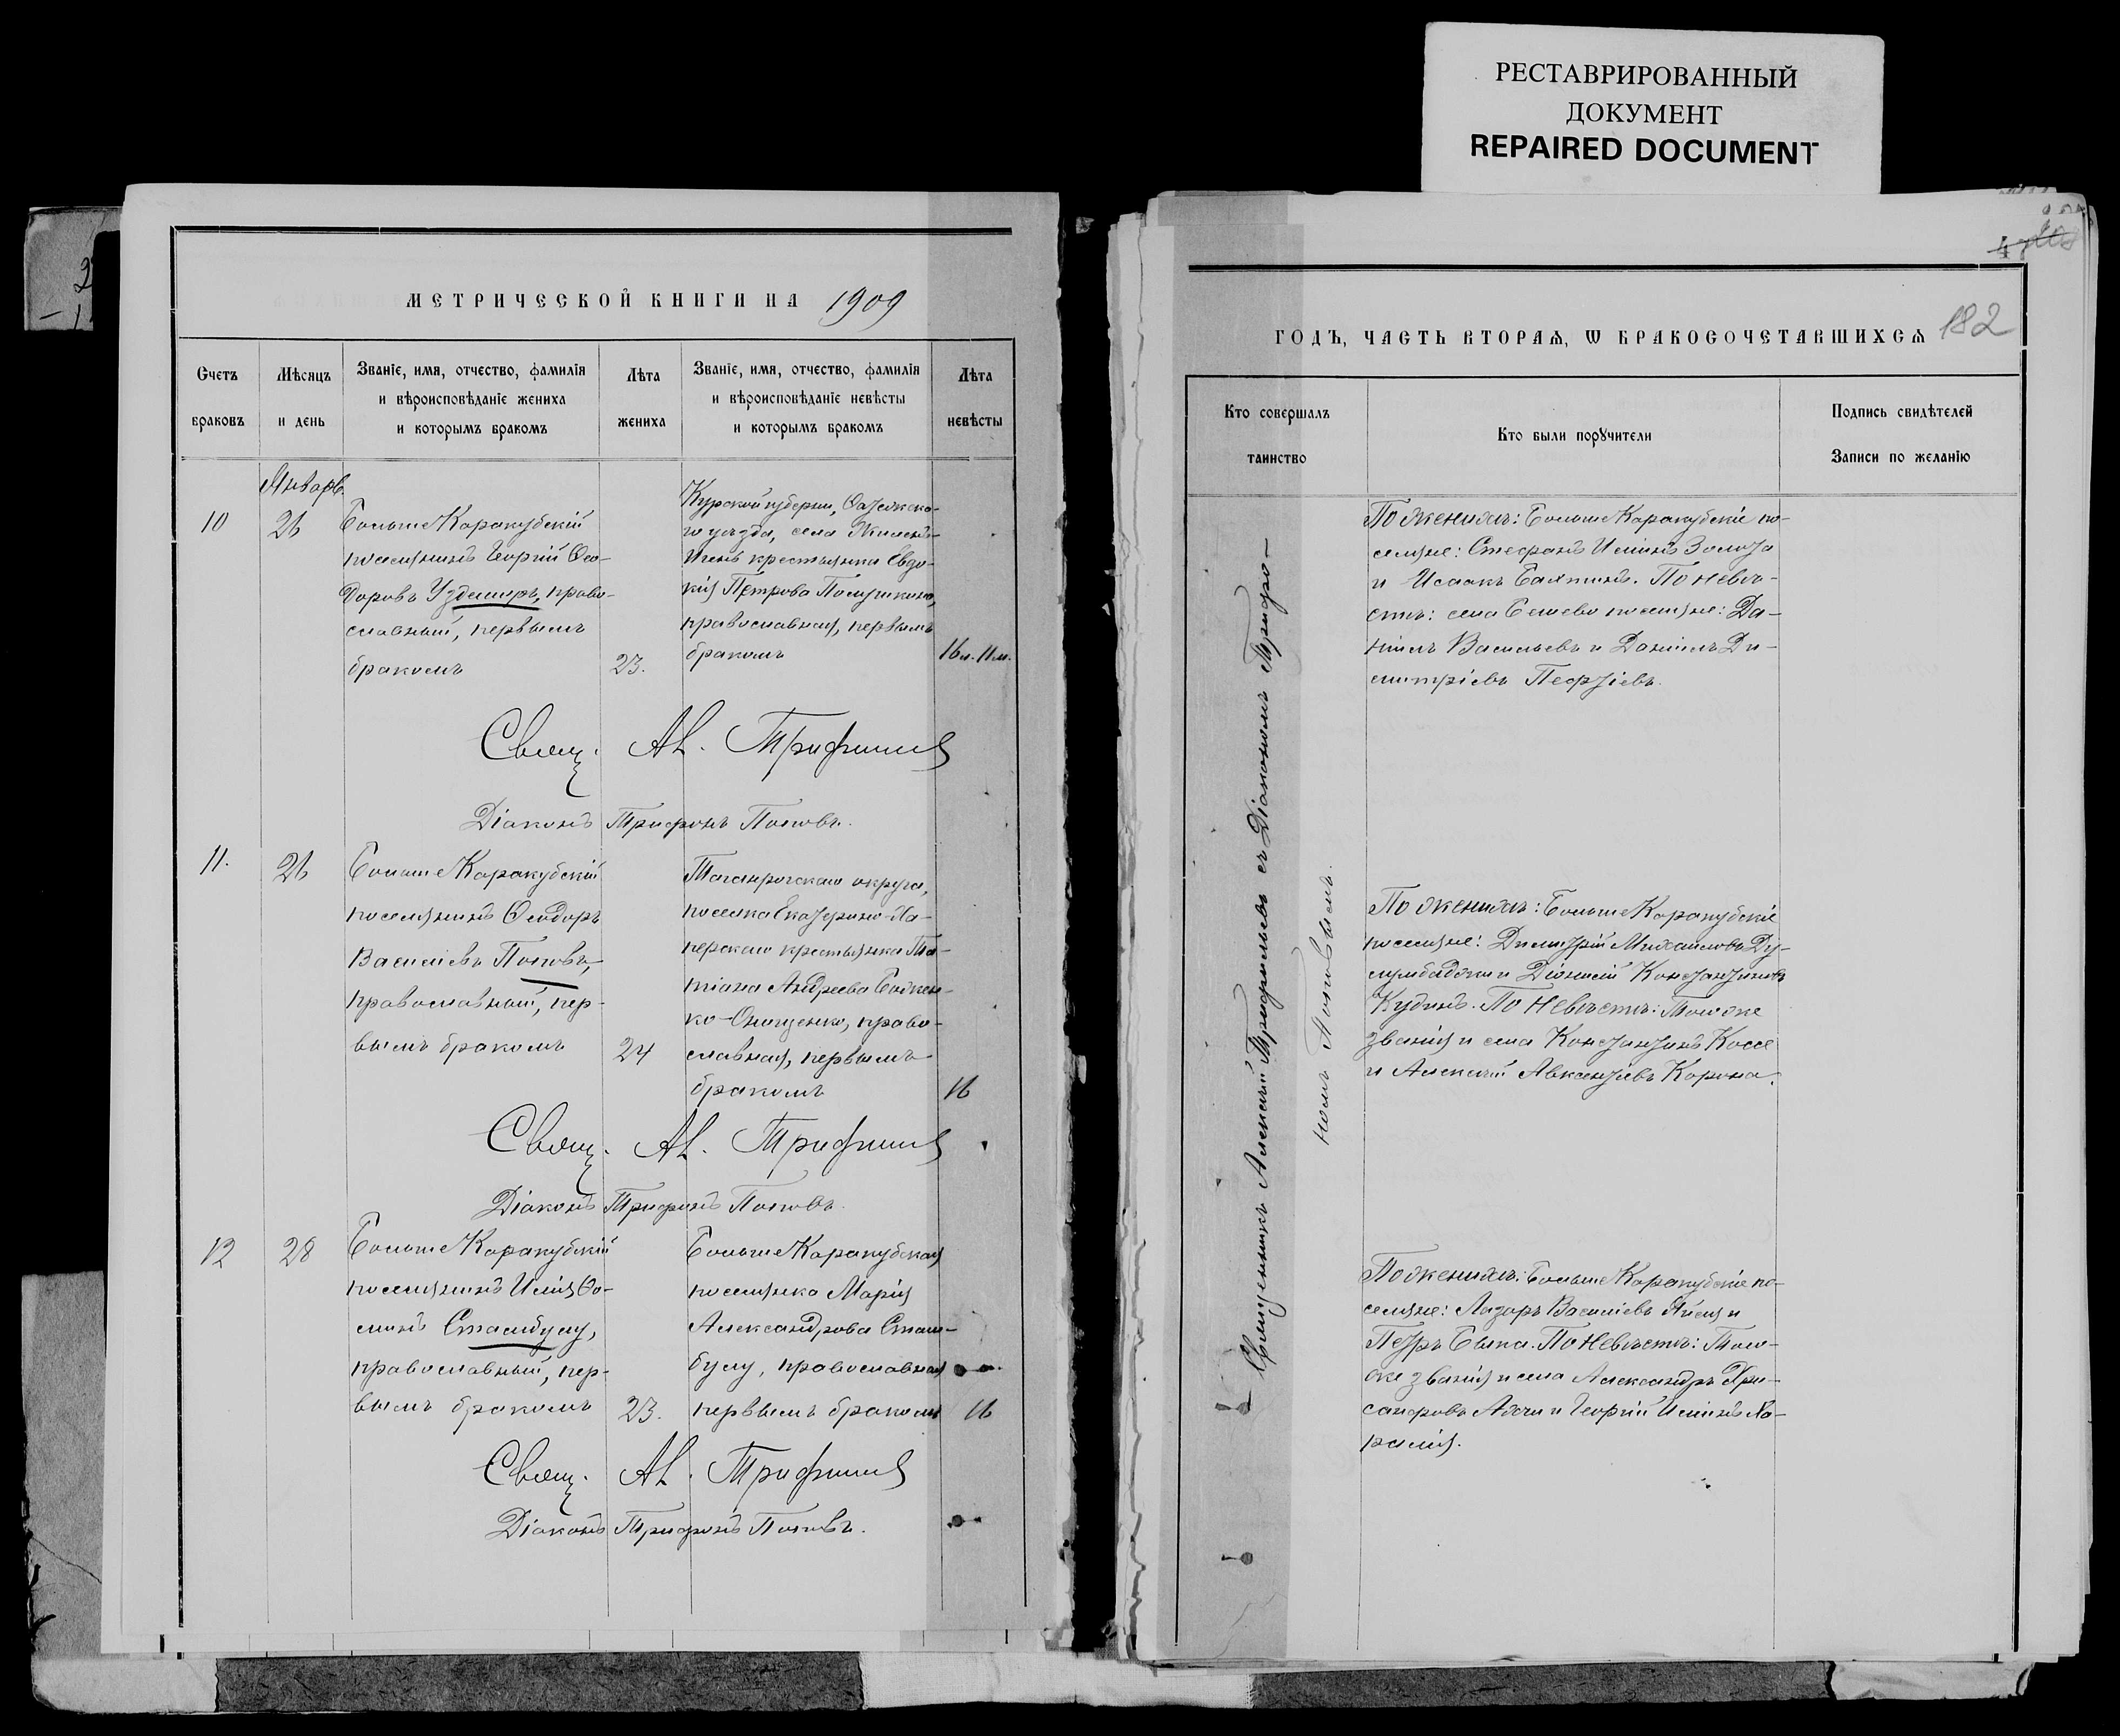 РЕСТАВРИРОВАННЫЙ
ДОКУМЕНТ
REPAIRED DOCUMENT
МЕТРИЧЕСКОЙ КНИГИ НА 1909
Счетъ
браковъ
Мѣсяцъ
и день
Званіе, имя, отчество, фамилія
и вѣроисповѣданіе жениха
и которымъ бракомъ
Лѣта
жениха
Званіе, имя, отчество, фамилія
и вѣроисповѣданіе невѣсты
и которымъ бракомъ
Лѣта
невѣсты
Январь.
10
26
Больше Каракубскій
поселянинъ Георгій Ѳео-
доровъ Уздемиръ, право-
славный, первымъ
бракомъ
23.
Курской губерніи,
го уѣзда, села
крестьянка Евдо-
кія Петрова
православная, первымъ
бракомъ
16л. 11м.
Свящ. Ал. Трифильев
Діаконъ Трифонъ Поповъ.
11.
26
Больше Каракубскій
поселянинъ Ѳеодоръ
Василіевъ Поповъ,
православный, пер-
вымъ бракомъ
24
Таганрогскаго округа,
поселка Екатерино-Ха-
перскаго крестьянка Та-
тіана Андреева
ко-Онищенко, право-
славная, первымъ
бракомъ
16
Свящ. Ал. Трифильев
Діаконъ Трифонъ Поповъ.
12
28
Больше Каракубскій
поселянинъ Илія Ѳо-
минъ Стамбулу,
православный, пер-
вымъ бракомъ
23.
Больше Каракубская
поселянка Марія
Александрова Стам-
булу, православная
первымъ бракомъ
16
Свящ. Ал. Трифильев
Діаконъ Трифонъ Поповъ.
182
ГОДЪ, ЧАСТЬ ВТОРАѦ, Ѡ БРАКОСОЧЕТАВШИХСѦ
Кто совершалъ
таинство
Кто были порꙋчители
Подпись свидѣтелей
Записи по желанію
Священникъ Алексій Трифильевъ съ Діакономъ Трифо-
номъ Поповымъ.
По женихѣ: Больше Каракубскіе по-
селяне: Стефанъ Иліинъ Золота
и Исаакъ Бахтинъ. По невѣ-
стѣ: села Бешево поселяне: Да-
ніилъ Васильевъ и Даніилъ Ди-
митріевъ
По женихѣ: Больше Каракубскіе
поселяне: Димитрій Михайловъ
и Діонисій Константиновъ
По невѣстѣ: Того же
званія и села Константинъ Коссе
и Алексій Авксентіевъ Корона.
По женихѣ: Больше Каракубскіе по-
селяне: Лазарь Василіевъ и
Петръ По невѣстѣ: Того-
же званія и села Александръ Хри-
санфовъ и Георгій Иліинъ Ха-
ралія.